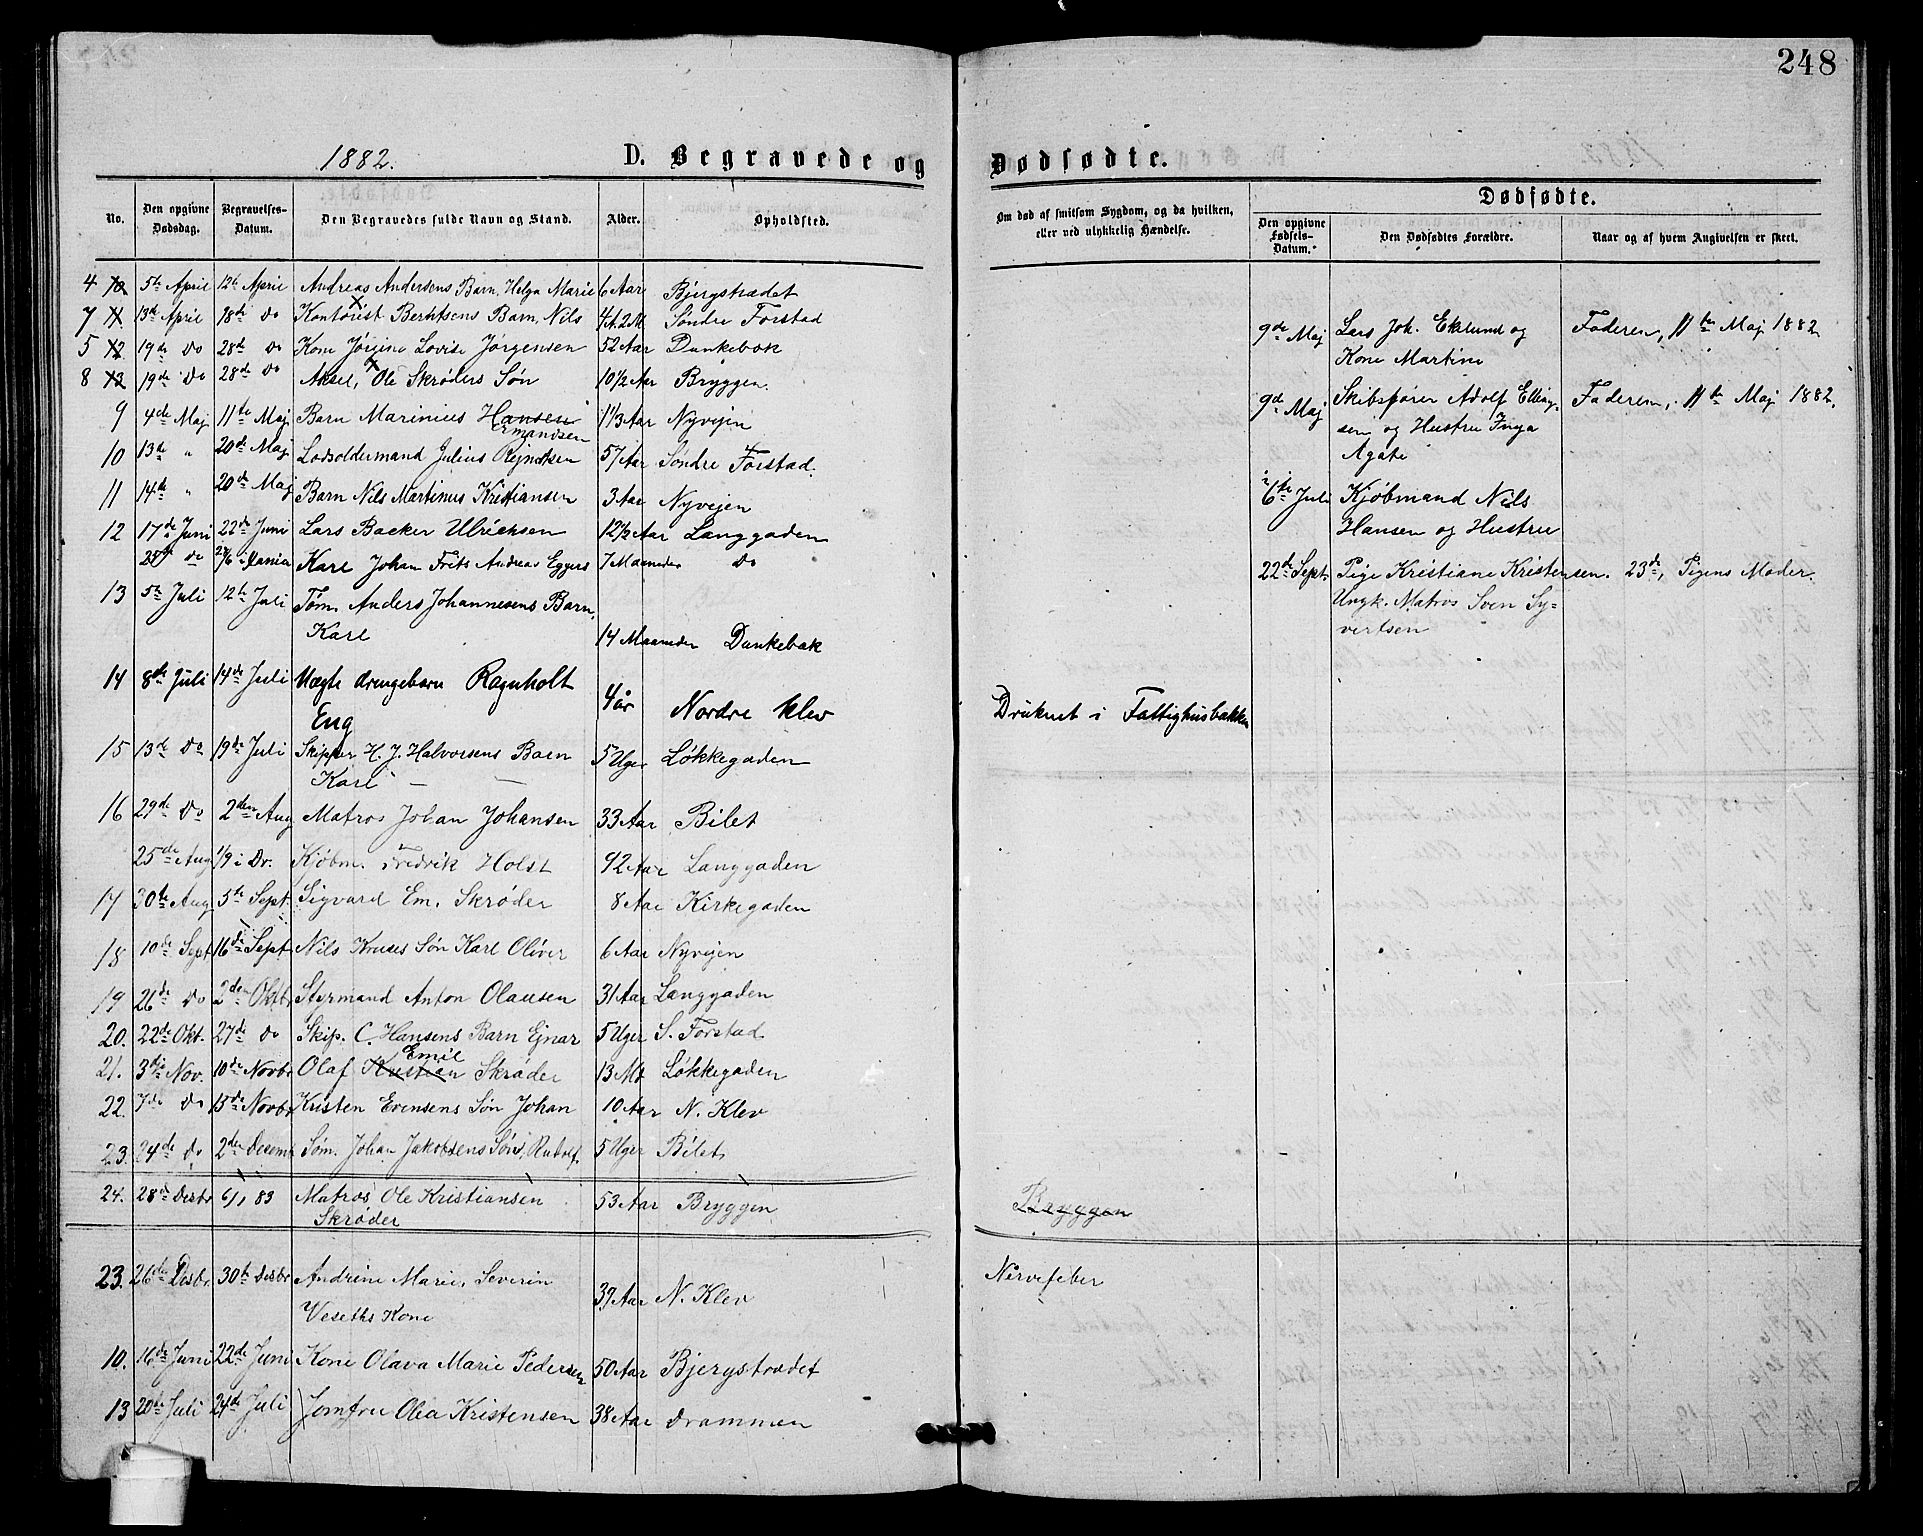 248
1882.
D. Begravede og Dødfødte.
No. Den opgivne Dødsdag. Begravelses-Datum. Den Begravedes fulde Navn og Stand. Alder. Opholdsted. Om død af smitsom Sygdom, og da hvilken, eller ved ulykkelig Hændelse. Dødfødte. Den opgivne Fødsels-Datum. Den Dødfødtes Forældre. Naar og af hvem Angivelsen er skeet.
4 10 5te April 12te April Andreas Andersens Barn, Helga Marie 6 Aar Bjergstrædet
7 11 13de April 18de Do Kontorist Berntsens Barn, Nils 4 A. 2 M. Søndre Forstad
5 12 19de Do 28de Do Kone Jørgine Lovise Jørgensen 52 Aar Dunkebæk
8 13 19de Do 28de Do Aksel, Ole Skrøders Søn 10 1/2 Aar Bryggen.
9 4de Maj 11te Maj Barn Marinius Hansen
Ermandsen 1 1/3 Aar Nyvejen
10 13de " 20de Maj Lodsoldermand Julius Rejnertsen 57 Aar Søndre Forstad.
11 14de " 20de Maj Barn Nils Martinus Kristiansen 3 Aar Nyvejen
12 17de Juni 22de Juni Lars Backer Ulrichsen 12 1/2 Aar Langgaden
Do Karl Johan Frits Andreas Eggers 7 Maaneder Do
13 5te Juli 12te Juli Tøm. Anders Johannesens Barn,
Karl 14 Maaneder Dunkebæk
14 8de Juli 14de Juli Uægte drengebarn Ragnholt
Eng 4 år Nordre klev Druknet i Fattighusbakken
15 13de Do 19de Juli Skipper H. J. Halvorsens Barn
Karl — — 5 Uger Løkkegaden
16 29de Do 2den Aug Matros Johan Johansen 33 Aar Bilet
25de Aug 1/9 i Dr. Kjøbm. Fredrik Holst 42 Aar Langgaden
17 30te Aug 5te Sept. Sigvard Em. Skrøder 8 Aar Kirkegaden
18 10de Sept. 16de Sept Nils Kruses Søn Karl Oliver 6 Aar Nyvejen
19 26de Do 2den Oktb Styrmand Anton Olausen 31 Aar Langgaden
20. 22de Okt. 27de Do Skip. C. Hansens Barn Ejnar 5 Uger S. Forstad
21. 3die Nov. 10de Novbr Olaf Kristian Emil Skrøder 13 Md Løkkegaden
22. 7de Do 15de Novbr Kristen Evensens Søn Johan 10 Aar N. Klev
23. 24de Do 2den Desemb Søm. Johan Jakobsens Søn, Rudolf 5 Uger Bilet
24. 28de Desbr 6/1 83 Matros Ole Kristiansen
Skrøder 53 Aar Bryggen Bryggen
23. 26de Desbr. 30te Desbr Andrine Marie, Severin
Veseths Kone 37 Aar N. Klev Nervefeber
10. 16de Juni 22de Juni Kone Olava Marie Pedersen 50 Aar Bjergstrædet
13 20de Juli 24de Juli Jomfru Olea Kristensen 38 Aar Drammen
9de Maj Lars Joh. Eklund og
Kone Martine Faderen, 11te Maj 1882
9de Maj Skibsfører Adolf Elling-
sen og Hustru Inga
Agate Faderen, 11te Maj 1882.
6te Juli Kjøbmand Nils
Hansen og Hustru
22de Sept. Pige Kristiane Kristensen. 23de, Pigens Moder.
Ungk. Matros Sven Sy-
vertsen